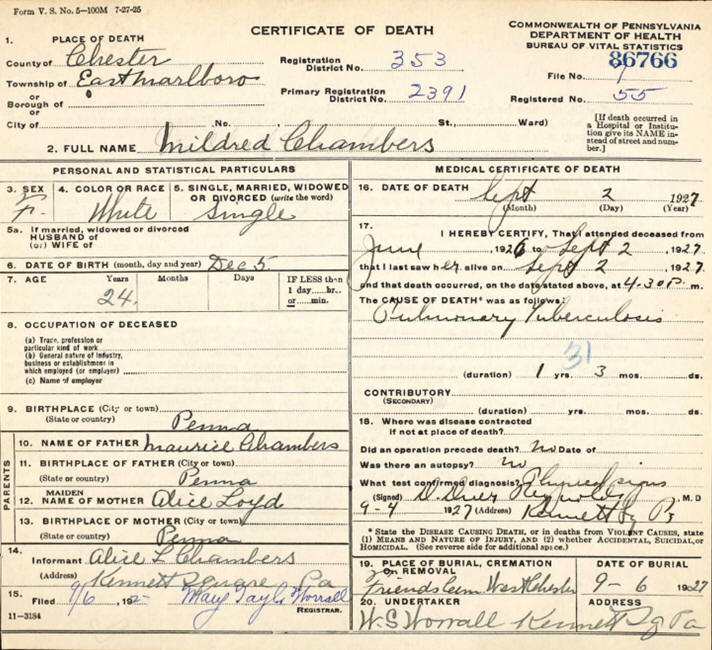 Form V. S. No. 5—100M 7-27-25
CERTIFICATE OF DEATH
COMMONWEALTH OF PENNSYLVANIA
DEPARTMENT OF HEALTH
BUREAU OF VITAL STATISTICS
1. PLACE OF DEATH
County of Chester
Registration District No. 353
86766
File No.
Township of East Marlboro
or
Borough of
or
Primary Registration District No. 2391
Registered No. 55
City of No. St., Ward)
[If death occurred in a Hospital or Institution give its NAME instead of street and number.]
2. FULL NAME Mildred Chambers
PERSONAL AND STATISTICAL PARTICULARS
3. SEX F.
4. COLOR OR RACE White
5. SINGLE, MARRIED, WIDOWED OR DIVORCED (write the word) Single
5a. If married, widowed or divorced
HUSBAND of
(or) WIFE of
6. DATE OF BIRTH (month, day and year) Dec 5
7. AGE Years 24 Months Days IF LESS than 1 day....hr.. or....min.
8. OCCUPATION OF DECEASED
(a) Trade, profession or particular kind of work
(b) General nature of industry, business or establishment in which employed (or employer)
(c) Name of employer
9. BIRTHPLACE (City or town)
(State or country) Penna
PARENTS
10. NAME OF FATHER Maurice Chambers
11. BIRTHPLACE OF FATHER (City or town)
(State or country) Penna
12. MAIDEN NAME OF MOTHER Alice Loyd
13. BIRTHPLACE OF MOTHER (City or town)
(State or country) Penna
14. Informant Alice L Chambers
(Address) Kennett Square Pa
15. Filed 9/6, 192 Mary Taylor Worrall
REGISTRAR.
11—3184
MEDICAL CERTIFICATE OF DEATH
16. DATE OF DEATH Sept 2 1927
(Month) (Day) (Year)
17. I HEREBY CERTIFY, That I attended deceased from
June 1926 to Sept 2, 1927
that I last saw her alive on Sept 2, 1927
and that death occurred, on the date stated above, at 4.30 P. m.
The CAUSE OF DEATH* was as follows:
Pulmonary Tuberculosis
31
(duration) 1 yrs. 3 mos. ds.
CONTRIBUTORY
(SECONDARY)
(duration) yrs. mos. ds.
18. Where was disease contracted
if not at place of death?
Did an operation precede death? no Date of
Was there an autopsy? no
What test confirmed diagnosis? Physical signs
(Signed) Reynolds, M.D
9-4 1927 (Address) Kennett Sq Pa
* State the DISEASE CAUSING DEATH, or in deaths from VIOLENT CAUSES, state
(1) MEANS AND NATURE OF INJURY, and (2) whether ACCIDENTAL, SUICIDAL, or
HOMICIDAL. (See reverse side for additional space.)
19. PLACE OF BURIAL, CREMATION OR REMOVAL
Friends Cem. West Chester
DATE OF BURIAL
9-6 1927
20. UNDERTAKER
W.S Worrall
ADDRESS
Kennett Sq Pa